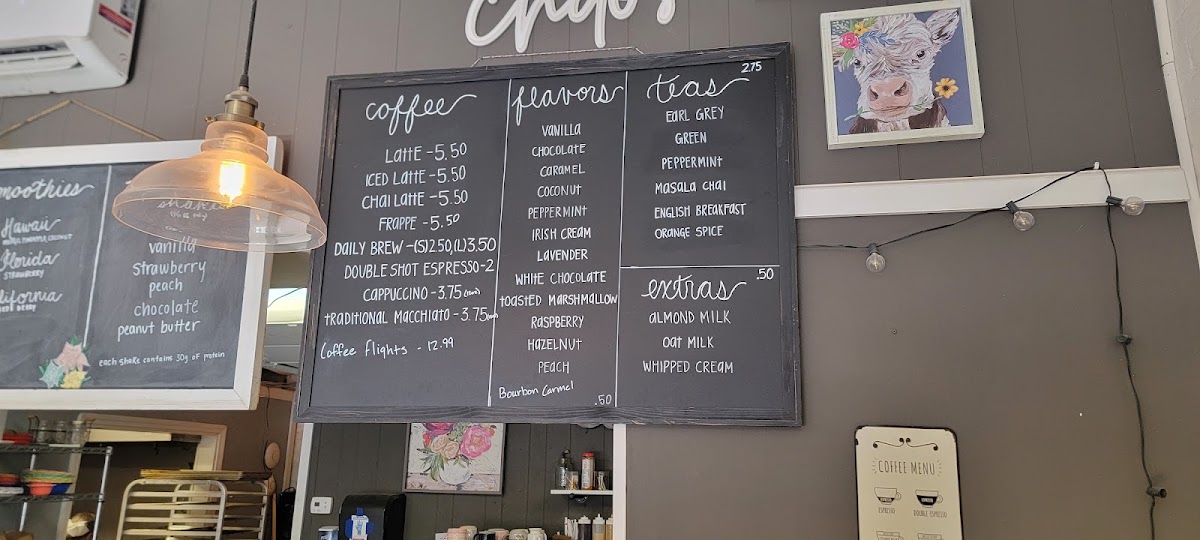 smoothies
Hawaii
Florida
STRAWBERRY
california
shakes
vanilla
strawberry
peach
chocolate
peanut butter
each shake contains 30g of protein
coffee
LATTE - 5.50
ICED LATTE - 5.50
CHAI LATTE - 5.50
FRAPPE - 5.50
DAILY BREW - (S)2.50, (L)3.50
DOUBLE SHOT ESPRESSO - 2
CAPPUCCINO - 3.75
TRADITIONAL MACCHIATO - 3.75
Coffee flights - 12.99
flavors
VANILLA
CHOCOLATE
CARAMEL
COCONUT
PEPPERMINT
IRISH CREAM
LAVENDER
WHITE CHOCOLATE
TOASTED MARSHMALLOW
RASPBERRY
HAZELNUT
PEACH
Bourbon Carmel
.50
teas 2.75
EARL GREY
GREEN
PEPPERMINT
MASALA CHAI
ENGLISH BREAKFAST
ORANGE SPICE
extras .50
ALMOND MILK
OAT MILK
WHIPPED CREAM
COFFEE MENU
ESPRESSO
DOUBLE ESPRESSO